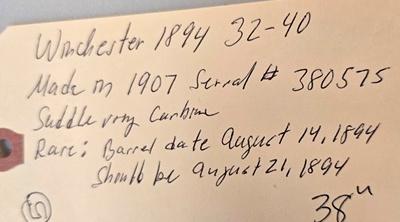 Winchester 1894 32-40
Made in 1907 Serral # 380575
Saddle ring Carbine
Rare: Barrel date August 14, 1894
Should be August 21, 1894
38"
5